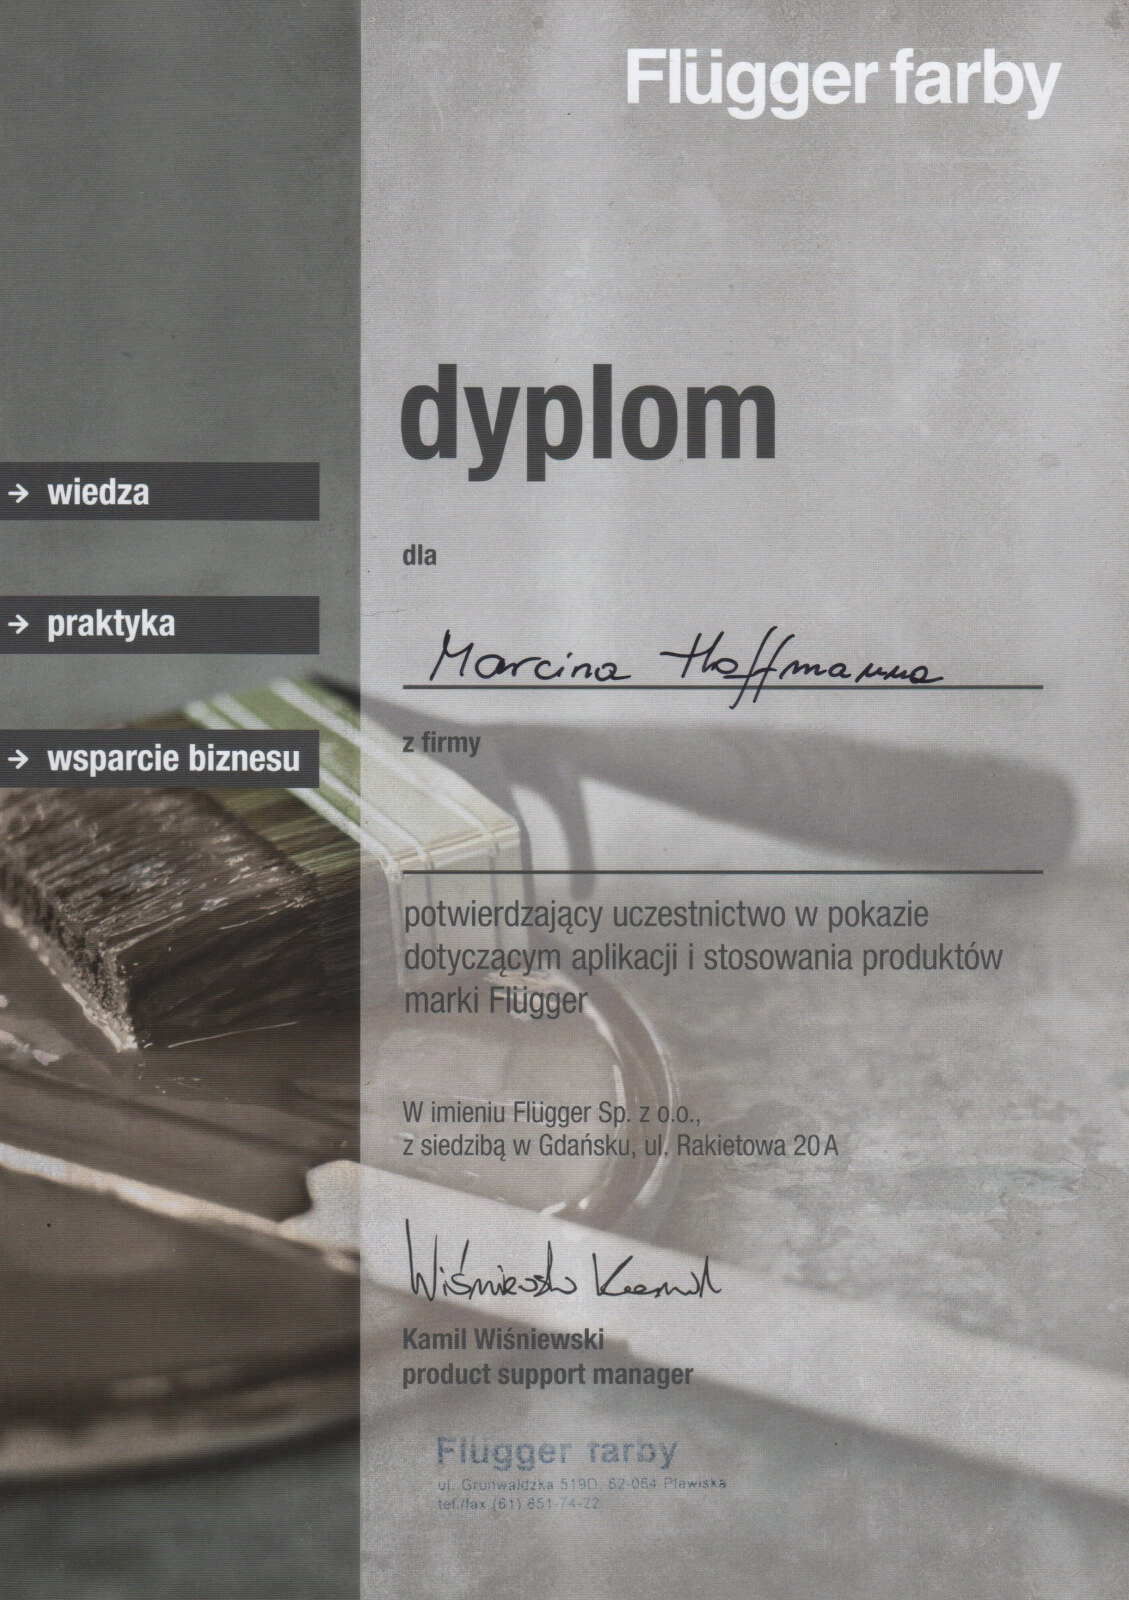 Flügger farby
dyplom
→ wiedza
dla
→ praktyka
Marcina Hoffmanna
z firmy
→ wsparcie biznesu
potwierdzający uczestnictwo w pokazie
dotyczącym aplikacji i stosowania produktów
marki Flügger
W imieniu Flügger Sp. z o.o.,
z siedzibą w Gdańsku, ul. Rakietowa 20 A
Wiśniewski Kamil
Kamil Wiśniewski
product support manager
Flügger farby
ul. Grunwaldzka 519D, 62-064 Plewiska
tel./fax (61) 651-74-22